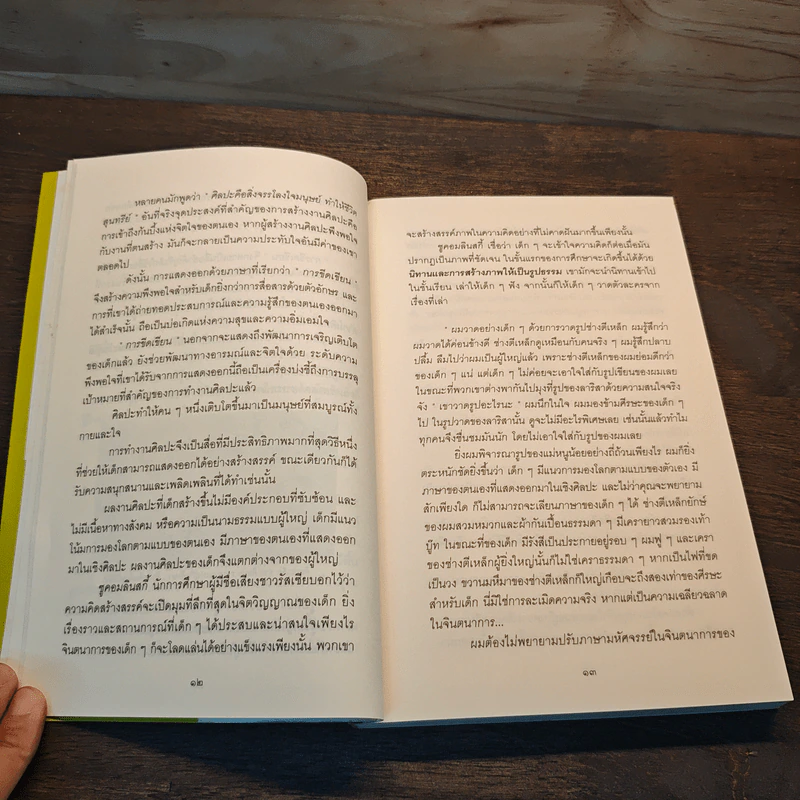 หลายคนมักพูดว่า " ศิลปะคือสิ่งจรรโลงใจมนุษย์ ทำให้ชีวิต
สุนทรีย์ " อันที่จริงจุดประสงค์ที่สำคัญของการสร้างงานศิลปะคือ
การเข้าถึงก้นบึ้งแห่งจิตใจของตนเอง หากผู้สร้างงานศิลปะพึงพอใจ
กับงานที่ตนสร้าง มันก็จะกลายเป็นความประทับใจอันมีค่าของเขา
ตลอดไป
ดังนั้น การแสดงออกด้วยภาษาที่เรียกว่า " การขีดเขียน "
จึงสร้างความพึงพอใจสำหรับเด็กยิ่งกว่าการสื่อสารด้วยตัวอักษร และ
การที่เขาได้ถ่ายทอดประสบการณ์และความรู้สึกของตนเองออกมา
ได้สำเร็จนั้น ถือเป็นบ่อเกิดแห่งความสุขและความอิ่มเอมใจ
" การขีดเขียน " นอกจากจะแสดงถึงพัฒนาการเจริญเติบโต
ของเด็กแล้ว ยังช่วยพัฒนาทางอารมณ์และจิตใจด้วย ระดับความ
พึงพอใจที่เขาได้รับจากการแสดงออกนี้ถือเป็นเครื่องบ่งชี้ถึงการบรรลุ
เป้าหมายที่สำคัญของการทำงานศิลปะแล้ว
ศิลปะทำให้คน ๆ หนึ่งเติบโตขึ้นมาเป็นมนุษย์ที่สมบูรณ์ทั้ง
กายและใจ
การทำงานศิลปะจึงเป็นสื่อที่มีประสิทธิภาพมากที่สุดวิธีหนึ่ง
ที่ช่วยให้เด็กสามารถแสดงออกได้อย่างสร้างสรรค์ ขณะเดียวกันก็ได้
รับความสนุกสนานและเพลิดเพลินที่ได้ทำเช่นนั้น
ผลงานศิลปะที่เด็กสร้างขึ้นไม่มีองค์ประกอบที่ซับซ้อน และ
ไม่มีเนื้อหาทางสังคม หรือความเป็นนามธรรมแบบผู้ใหญ่ เด็กมีแนว
โน้มการมองโลกตามแบบของตนเอง มีภาษาของตนเองที่แสดงออก
มาในเชิงศิลปะ ผลงานศิลปะของเด็กจึงแตกต่างจากของผู้ใหญ่
ซูคอมลินสกี้ นักการศึกษาผู้มีชื่อเสียงชาวรัสเซียบอกไว้ว่า
ความคิดสร้างสรรค์จะเปิดมุมที่ลึกที่สุดในจิตวิญญาณของเด็ก ยิ่ง
เรื่องราวและสถานการณ์ที่เด็ก ๆ ได้ประสบและน่าสนใจเพียงไร
จินตนาการของเด็ก ๆ ก็จะโลดแล่นได้อย่างแข็งแรงเพียงนั้น พวกเขา
๑๒
จะสร้างสรรค์ภาพในความคิดอย่างที่ไม่คาดฝันมากขึ้นเพียงนั้น
ซูคอมลินสกี้ เชื่อว่า เด็ก ๆ จะเข้าใจความคิดก็ต่อเมื่อมัน
ปรากฏเป็นภาพที่ชัดเจน ในชั้นแรกของการศึกษาจะเกิดขึ้นได้ด้วย
นิทานและการสร้างภาพให้เป็นรูปธรรม เขามักจะนำนิทานเข้าไป
ในชั้นเรียน เล่าให้เด็ก ๆ ฟัง จากนั้นก็ให้เด็ก ๆ วาดตัวละครจาก
เรื่องที่เล่า
" ผมวาดอย่างเด็ก ๆ ด้วยการวาดรูปช่างตีเหล็ก ผมรู้สึกว่า
ผมวาดได้ค่อนข้างดี ช่างตีเหล็กดูเหมือนกับคนจริง ๆ ผมรู้สึกปลาบ
ปลื้ม ลืมไปว่าผมเป็นผู้ใหญ่แล้ว เพราะช่างตีเหล็กของผมย่อมดีกว่า
ของเด็ก ๆ แน่ แต่เด็ก ๆ ไม่ค่อยจะเอาใจใส่กับรูปเขียนของผมเลย
ในขณะที่พวกเขาต่างพากันไปมุงที่รูปของลาริสาด้วยความสนใจจริง
จัง " เขาวาดรูปอะไรนะ " ผมนึกในใจ ผมมองข้ามศีรษะของเด็ก ๆ
ไป ในรูปวาดของลาริสานั้น ดูจะไม่มีอะไรพิเศษเลย เช่นนั้นแล้วทำไม
ทุกคนจึงชื่นชมมันนัก โดยไม่เอาใจใส่กับรูปของผมเลย
ยิ่งผมพิจารณารูปของแม่หนูน้อยอย่างถี่ถ้วนเพียงไร ผมก็ยิ่ง
ตระหนักชัดยิ่งขึ้นว่า เด็ก ๆ มีแนวการมองโลกตามแบบของตัวเอง มี
ภาษาของตนเองที่แสดงออกมาในเชิงศิลปะ และไม่ว่าคุณจะพยายาม
สักเพียงใด ก็ไม่สามารถจะเลียนภาษาของเด็ก ๆ ได้ ช่างตีเหล็กยักษ์
ของผมสวมหมวกและผ้ากันเปื้อนธรรมดา ๆ มีเครายาวสวมรองเท้า
บู๊ท ในขณะที่ของเด็ก มีรังสีเป็นประกายอยู่รอบ ๆ ผมฟู ๆ และเครา
ของช่างตีเหล็กผู้ยิ่งใหญ่นั้นก็ไม่ใช่เคราธรรมดา ๆ หากเป็นไฟที่ขด
เป็นวง ขวานมหึมาของช่างตีเหล็กก็ใหญ่เกือบจะถึงสองเท่าของศีรษะ
สำหรับเด็ก นี่มิใช่การละเมิดความจริง หากแต่เป็นความเฉลียวฉลาด
ในจินตนาการ...
ผมต้องไม่พยายามปรับภาษามหัศจรรย์ในจินตนาการของ
๑๓